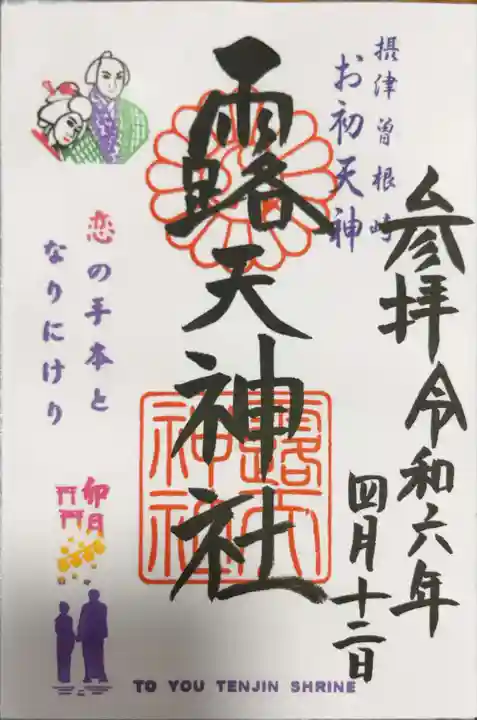 参拝 令和六年
四月十二日
摂津曽根崎
お初天神
露天神社
恋の手本と
なりにけり
卯月
露天
神社
TO YOU TENJIN SHRINE